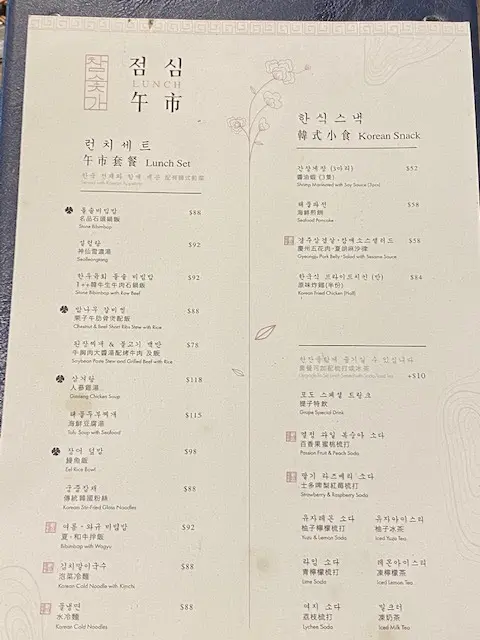 참숯가
점심
LUNCH
午市
런치세트
午市套餐 Lunch Set
돌솥비빔밥
名品石頭鍋飯 $88
Stone Bibimbap
설렁탕
神仙雪濃湯 $92
Seolleongtang
한우육회 돌솥 비빔밥
1++韓牛生牛肉石鍋飯 $92
Stone Bibimbap with Raw Beef
밤나무 갈비찜
栗子牛肋骨煲配飯 $88
Chestnut & Beef Short Ribs Stew with Rice
된장찌개 & 불고기 백반
牛胸肉大醬湯配烤牛肉 及飯 $78
Soybean Paste Stew and Grilled Beef with Rice
삼계탕
人蔘雞湯 $118
Ginseng Chicken Soup
해물순두부찌개
海鮮豆腐湯 $115
Tofu Soup with Seafood
장어 덮밥
鰻魚飯 $98
Eel Rice Bowl
궁중잡채
傳統韓國粉絲 $88
Korean Stir-Fried Glass Noodles
여름·와규 비빔밥
夏·和牛拌飯 $92
Bibimbap with Wagyu
김치말이국수
泡菜冷麵 $88
Korean Cold Noodle with Kimchi
물냉면
水冷麵 $88
Korean Cold Noodles
한식스낵
韓式小食 Korean Snack
간장새장 (3마리)
醬油蝦 (3隻) $52
Shrimp Marinated with Soy Sauce (3pcs)
해물파전
海鮮煎餅 $58
Seafood Pancake
경주삼겹살·참깨소스샐러드
慶州五花肉·夏胡麻沙律 $58
Gyeongju Pork Belly·Salad with Sesame Sauce
한국식 프라이드치킨 (반)
原味炸雞(半份) $84
Korean Fried Chicken (Half)
+$10
포도 스페셜 드링크
提子特飲
Grape Special Drink
열정 과일 복숭아 소다
百香果蜜桃梳打
Passion Fruit & Peach Soda
딸기 라즈베리 소다
士多啤梨紅莓梳打
Strawberry & Raspberry Soda
유자레몬 소다
柚子檸檬梳打
Yuzu & Lemon Soda
유자아이스티
柚子冰茶
Iced Yuzu Tea
라임 소다
青檸檬梳打
Lime Soda
레몬아이스티
凍檸檬茶
Iced Lemon Tea
여지 소다
荔枝梳打
Lychee Soda
밀크티
凍奶茶
Iced Milk Tea